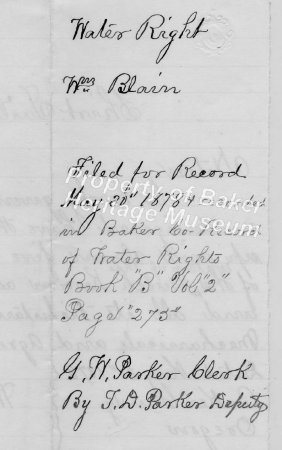 Water Right
Wm Blain
Filed for Record
May 20" 1878 & Recorded
in Baker Co Record
of Water Rights
Book "B" Vol "2"
Page "273"
G. W. Parker Clerk
By I. D. Parker Deputy
Property of Baker
Heritage Museum